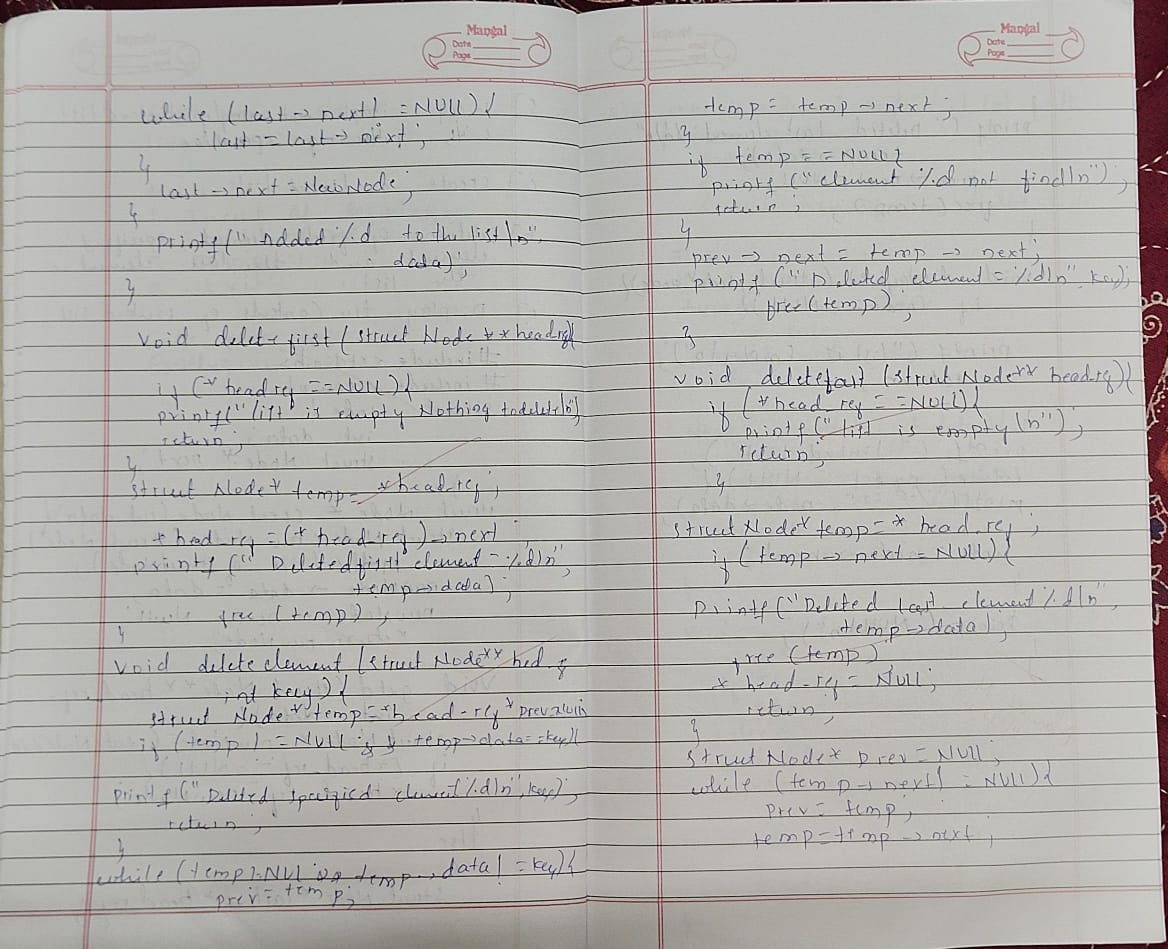 Mangal
Date
Page
while (last -> next! = NULL) {
last = last -> next;
}
last -> next = NewNode;
}
printf(" Added %d to the list \n"
data);
}
void delete first ( struct Node ** head ref){
if (* head ref == NULL) {
printf(" list is empty Nothing to delete\n")
return;
}
struct Node* temp = *head_ref;
* head_ref = (* head_ref) -> next
printf (" Deleted first element = %d\n",
temp -> data);
free (temp);
}
void delete element (struct Node** hed
int key) {
struct Node* temp = *head_ref * prev = NULL
if (temp ! = NULL && temp->data==key){
printf (" Deleted specified element %d\n", key);
return;
}
while (temp!=NULL && temp -> data ! = key) {
prev = temp;
Mangal
Date
Page
temp = temp -> next;
}
if temp == NULL {
printf (" element %d not find \n");
return;
}
prev -> next = temp -> next;
printf (" Deleted element = %d\n", key);
free(temp);
}
void delete last (struct Node** head_ref) {
if (* head_ref == NULL) {
printf (" list is empty \n");
return;
}
struct Node* temp = * head_ref;
if (temp -> next = NULL) {
Printf ("Deleted last element %d\n",
temp -> data);
free (temp)
* head_ref = NULL;
return,
}
struct Node* prev = NULL;
while (temp -> next! = NULL) {
prev = temp,
temp = temp -> next;